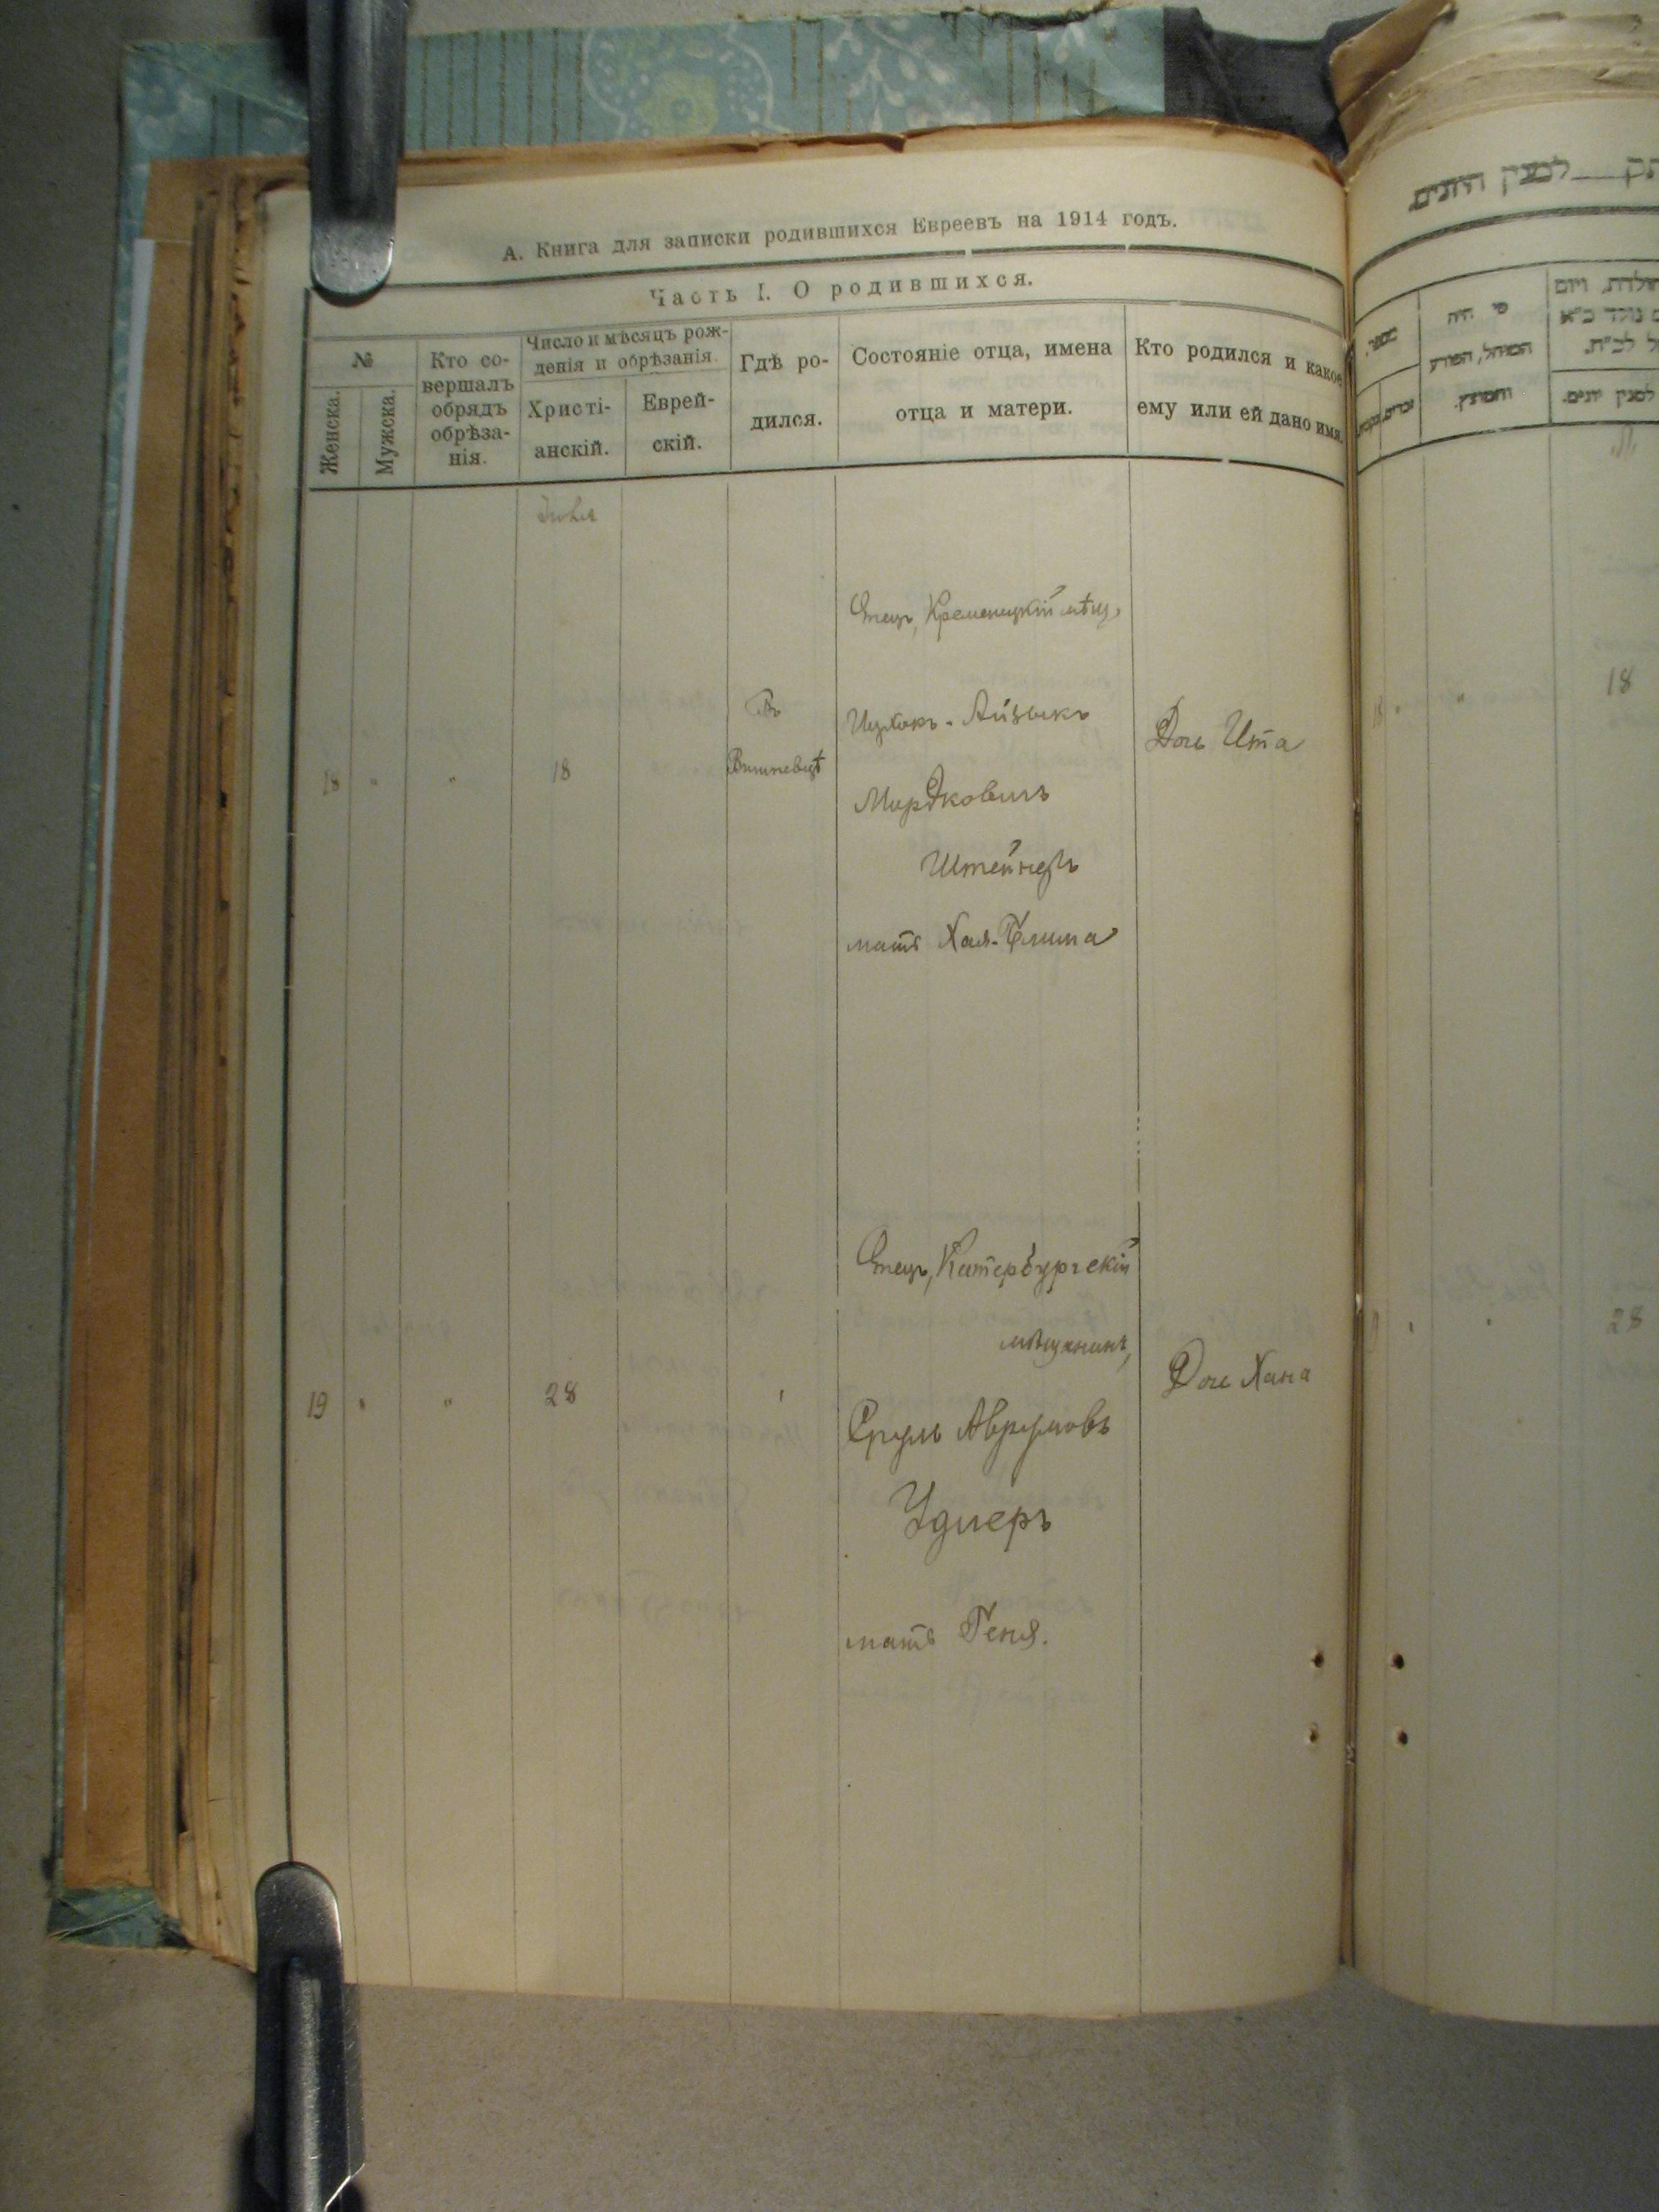 А. Книга для записки родившихся Евреевъ на 1914 годъ.
Часть I. О родившихся.
№
Женска.
Мужска.
Кто со-
вершалъ
обрядъ
обрѣза-
нія.
Число и мѣсяцъ рож-
денія и обрѣзанія.
Христі-
анскій.
Еврей-
скій.
Гдѣ ро-
дился.
Состояніе отца, имена
отца и матери.
Кто родился и какое
ему или ей дано имя.
18 " " 18
Въ
Вишневцѣ
Отецъ, Кременецкій мѣщ.
Ицхокъ-Айзыкъ
Мордковичъ
Штейнеръ
мать Хая-
Дочь Ита
19 " " 28
Отецъ, Катербургскій
мѣщанинъ,
Сруль Аврумовъ
мать Геня.
Дочь Хана
למנין היונים
מספר
מי היה
המוהל, הפורע
והמוצץ.
למנין יונים.
18
28